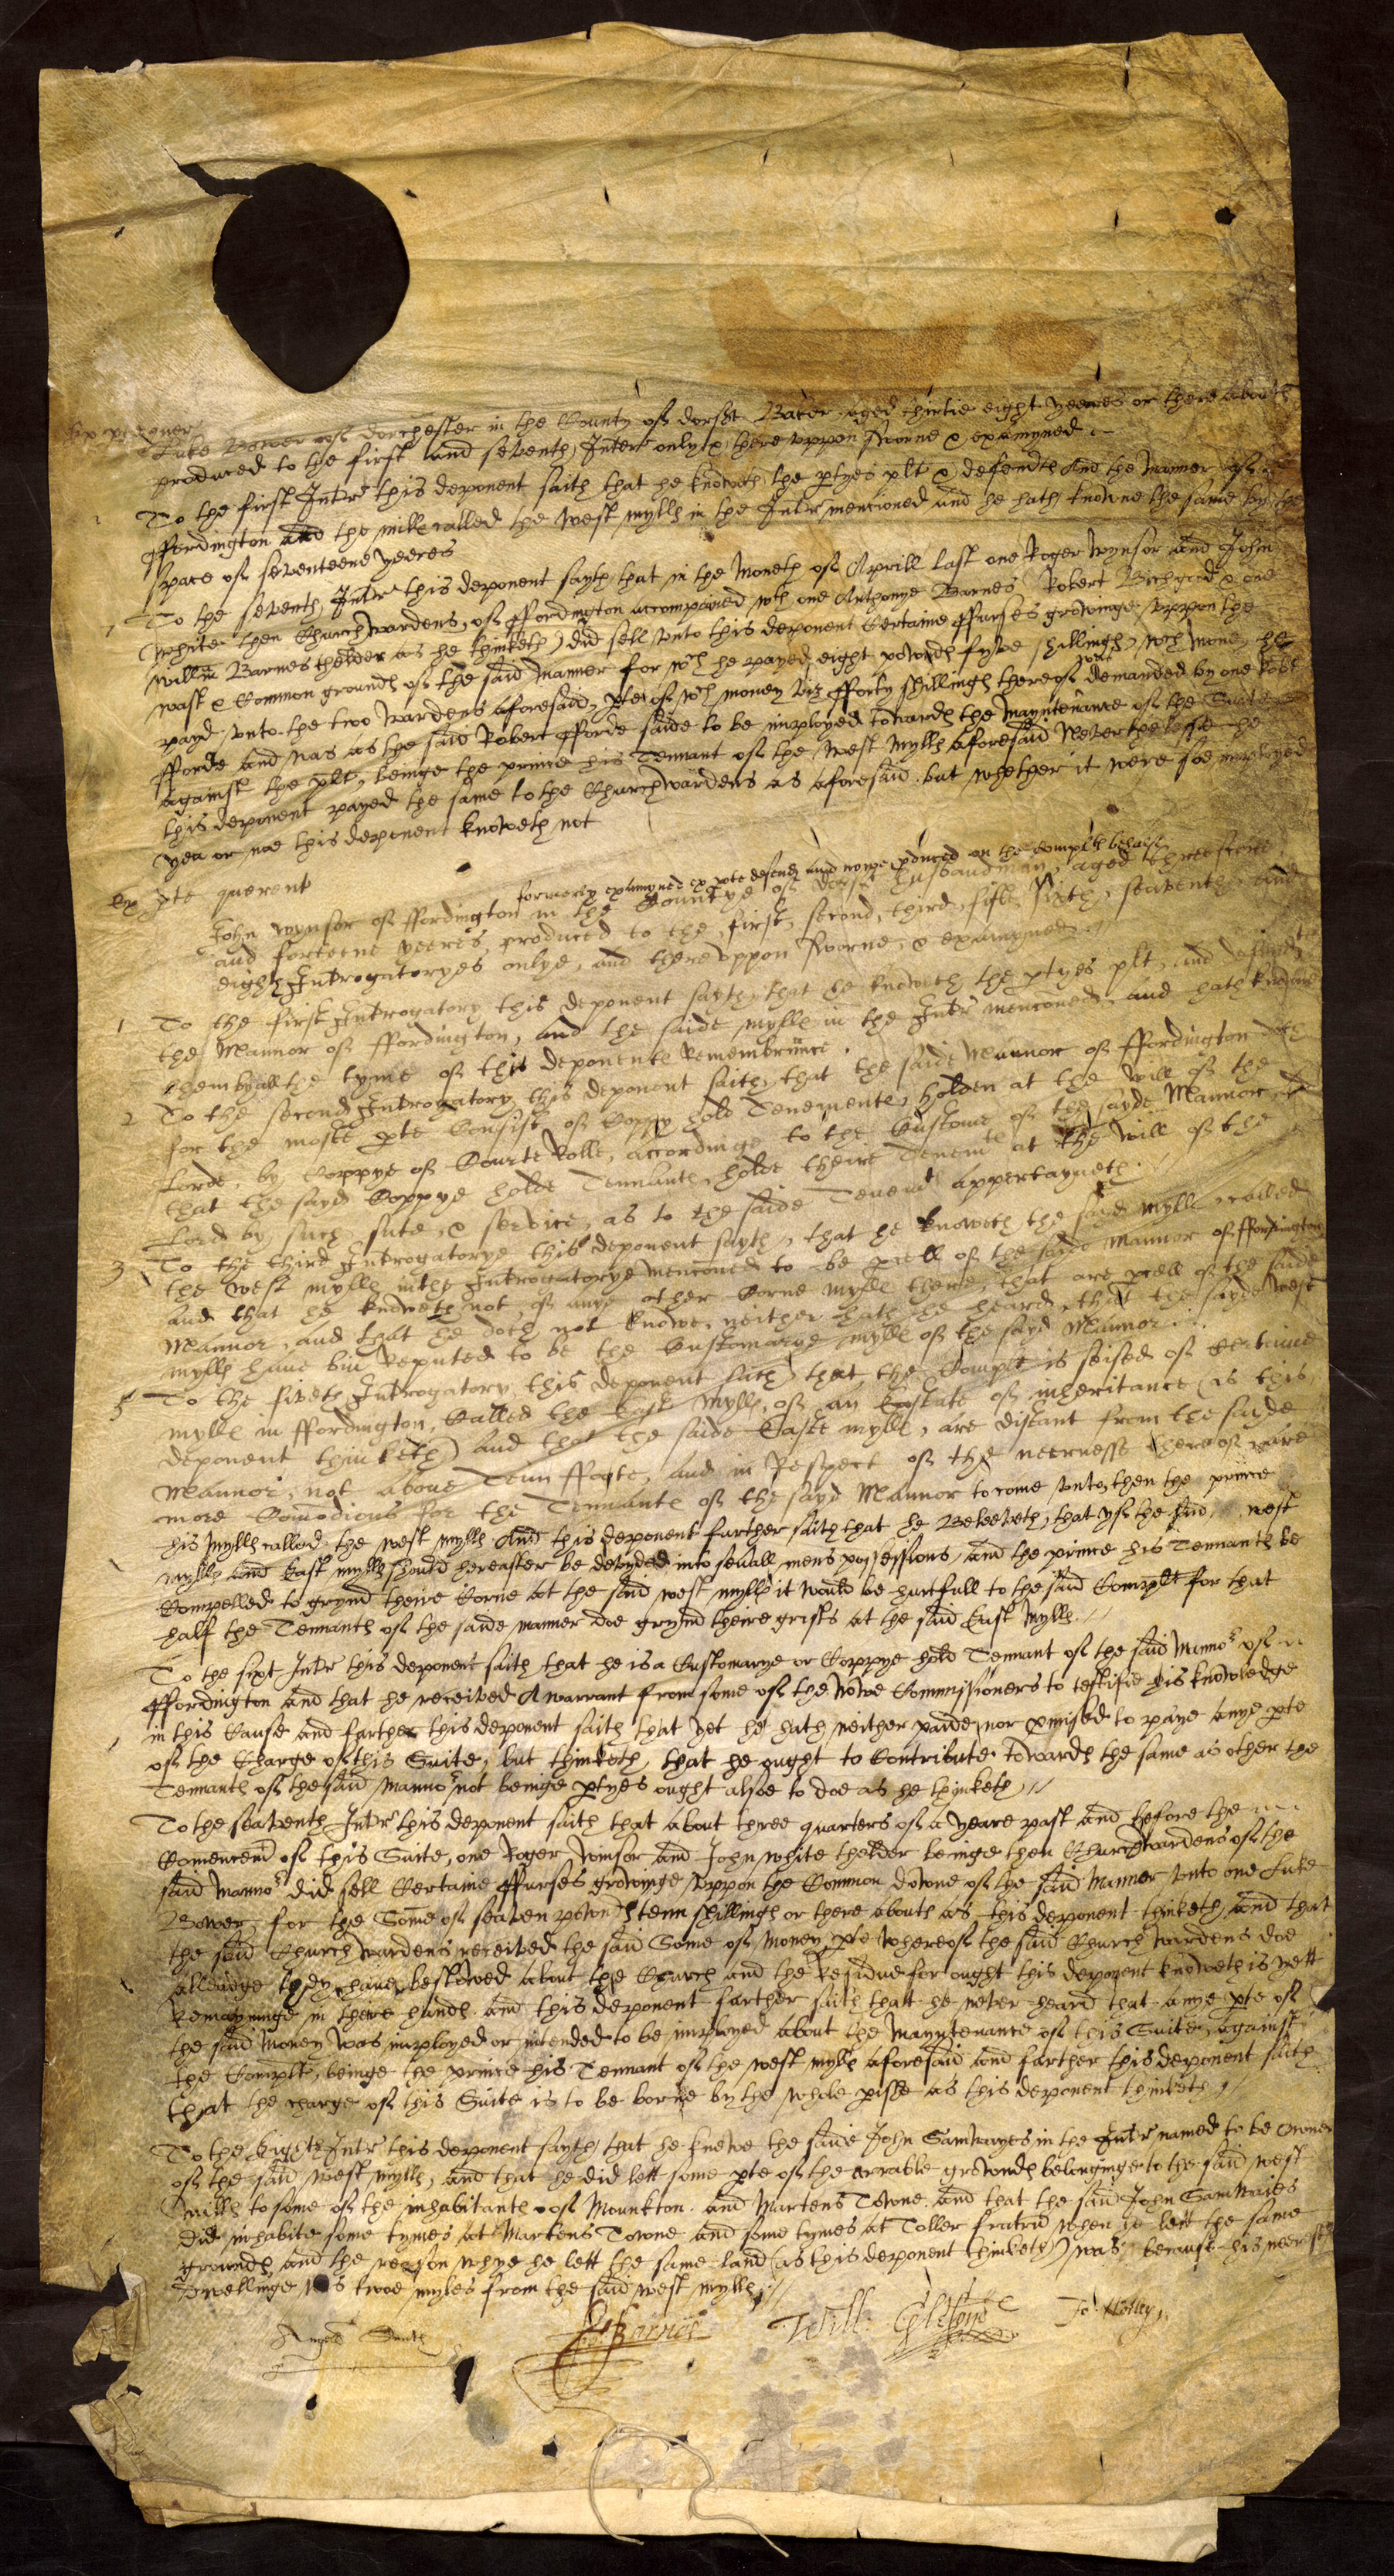 Luke Bower of dorchester in the County of dorset Baker aged thirtie eight yeeres or there aboutes
produced to the first and seventh Interr only & there vppon sworne & exaymyned
1 To the first Interr this deponent saith that he knoweth the ptyes plt & defendtes And the Manner of
ffordington and the mille called the West mylls in the Interr mencioned and he hath knowne the same by the
space of seventeene yeeres
7 To the seventh Interr this deponent sayth that in the Moneth of Aprill last one Roger Wynsor and John
White then Churchwardens of ffordington accompanied wth one Anthonye Barnes Robert Bichgood & one
Willm Barnes thelder as he thinketh did sell vnto this deponent Certaine ffurses growinge vppon the
wast & Common groundes of the said Manner for wch he payed eight powndes fyve shillinges wch money he
payd vnto the two Wardens aforesaid, pte of wch money viz fforty shillinges thereof was demanded by one Robt
fforde and was as the said Robert fforde saide to be imployed towardes the Mayntenance of the Suite
against the plt, beinge the prince his Tennant of the West Mylls aforesaid Neverthelesse he
this deponent payed the same to the Churchwardens as aforesaid but whether it were soe imployed
yea or noe this deponent knoweth not
Ex pte querent
formerly examyned ex pte defend and nowe pduced on the complts behalf
John Wynsor of ffordington in the Countye of dorset husbandman, aged threescore
and forteene yeeres, produced to the first, second, third, fift, sixth, seaventh and
eighth Introgatoryes onlye, and therevppon sworne & examyned
1 To the first Introgatory this deponent sayth, that he knoweth the ptyes plt, and defendtes
the Mannor of ffordington, and the saide mylls in the Interr mencioned, and hath knowne
them by all the tyme of this deponentes Remembrance.
2 To the second Introgatory this deponent saith, that the saide Mannor of ffordington doth
for the moste pte Consist of Coppy hold Tenementes, holden at the will of the
Lorde, by Coppye of Courte Rolle, accordinge to the Custome of the sayde Mannor, &
that the sayd Coppye holde Tennantes, holde theire Tenemtes at the will of the
Lord by such sute, & service, as to the saide Tenemtes appertayneth.
3 To the third Introgatorye this deponent sayth, that he knoweth the sayd Mylls called
the West mylls in the Introgatorye mencioned to be pcell of the saide Mannor of ffordington
And that he knoweth not of anye other Corne mylls there, that are pcell of the saide
Mannor, and that he doth not knowe, neither hath he heard, that the sayde West
mylls have bin Reputed to be the Customarye mylls of the sayd Mannor.
5 To the fiveth Introgatory this deponent saith that the Complt is seised of Certaine
mylls in ffordington, Called the East Mylls, of an Eastate of inheritance (as this
deponent thinketh) And that the saide Easte mylls, are distant from the sayde
Mannor, not above Tenn ffoote, and in Respect of the neernesse thereof, are
more Comodious for the Tennantes of the sayd Mannor to come vnto, then the prince
his Mylls called the West mylls And this deponent further saith that he Beleeveth, that yf the said West
mylls and East mylls should hereafter be devyded into seuall mens possessions, and the prince his Tennantes be
Compelled to grynd theire Corne at the said West mylls it would be hurtfull to the said Complt for that
half the Tennantes of the saide manner doe grynd theire gristes at the said East Mylls.
To the sixt Interr this deponent saith that he is a Customarye or Coppye hold Tennant of the said Mannor of
ffordington and that he received A warrant from some of the Nowe Commissioners to testifie his knowledge
in this Cause and farther this deponent saith that yet he hath neither paide nor pmised to paye anye pte
of the Charge of this Suite, but thinketh that he ought to Contribute towardes the same as other the
Tennantes of the said Mannor not beinge ptyes ought alsoe to doe as he thinketh
To the seaventh Interr this deponent saith that about three quarters of a yeare past and before the
Comencemt of this Suite, one Roger Winsor and John White thelder beinge then Churchwardens of the
said Mannor did sell Certaine ffurses growinge vppon the Common downe of the said Manner vnto one Luke
Bower, for the Some of seaven powndes tenn shillinges or there aboutes as this deponent thinketh, and that
the said Churchwardens received the said Some of Money, pte whereof the said Churchwardens doe
alleadge they have bestowed about the Church and the Residue for ought this deponent knoweth is yett
Remayninge in there handes and this deponent farther saith that he never heard that anye pte of
the said Money was imployed or intended to be imployed about the Mayntenance of this Suite, against
the Complt, beinge the prince his Tennant of the West mylls aforesaid and farther this deponent saith
that the charge of this Suite is to be borne by the whole pishe as this deponent thinketh
To the Eigth Interr this deponent sayth that he knewe the saide John Samwayes in the Interr named to be owner
of the said West mylls, and that he did lett some pte of the arrable growndes belonginge to the said West
mills to some of the inhabitantes of Mounkton and Martens Towne and that the said John Samwaies
did inhabite some tymes at Martens Towne and some tymes at Toller fratrū when he lett the same
groundes, and the reason whye he lett the same land (as this deponent thinketh) was, because his neerest
dwellinge was twoe myles from the said West mylls
Barnes Will